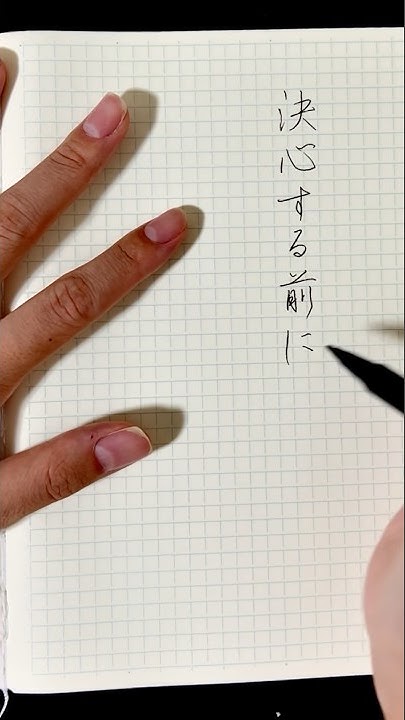 決心する前に